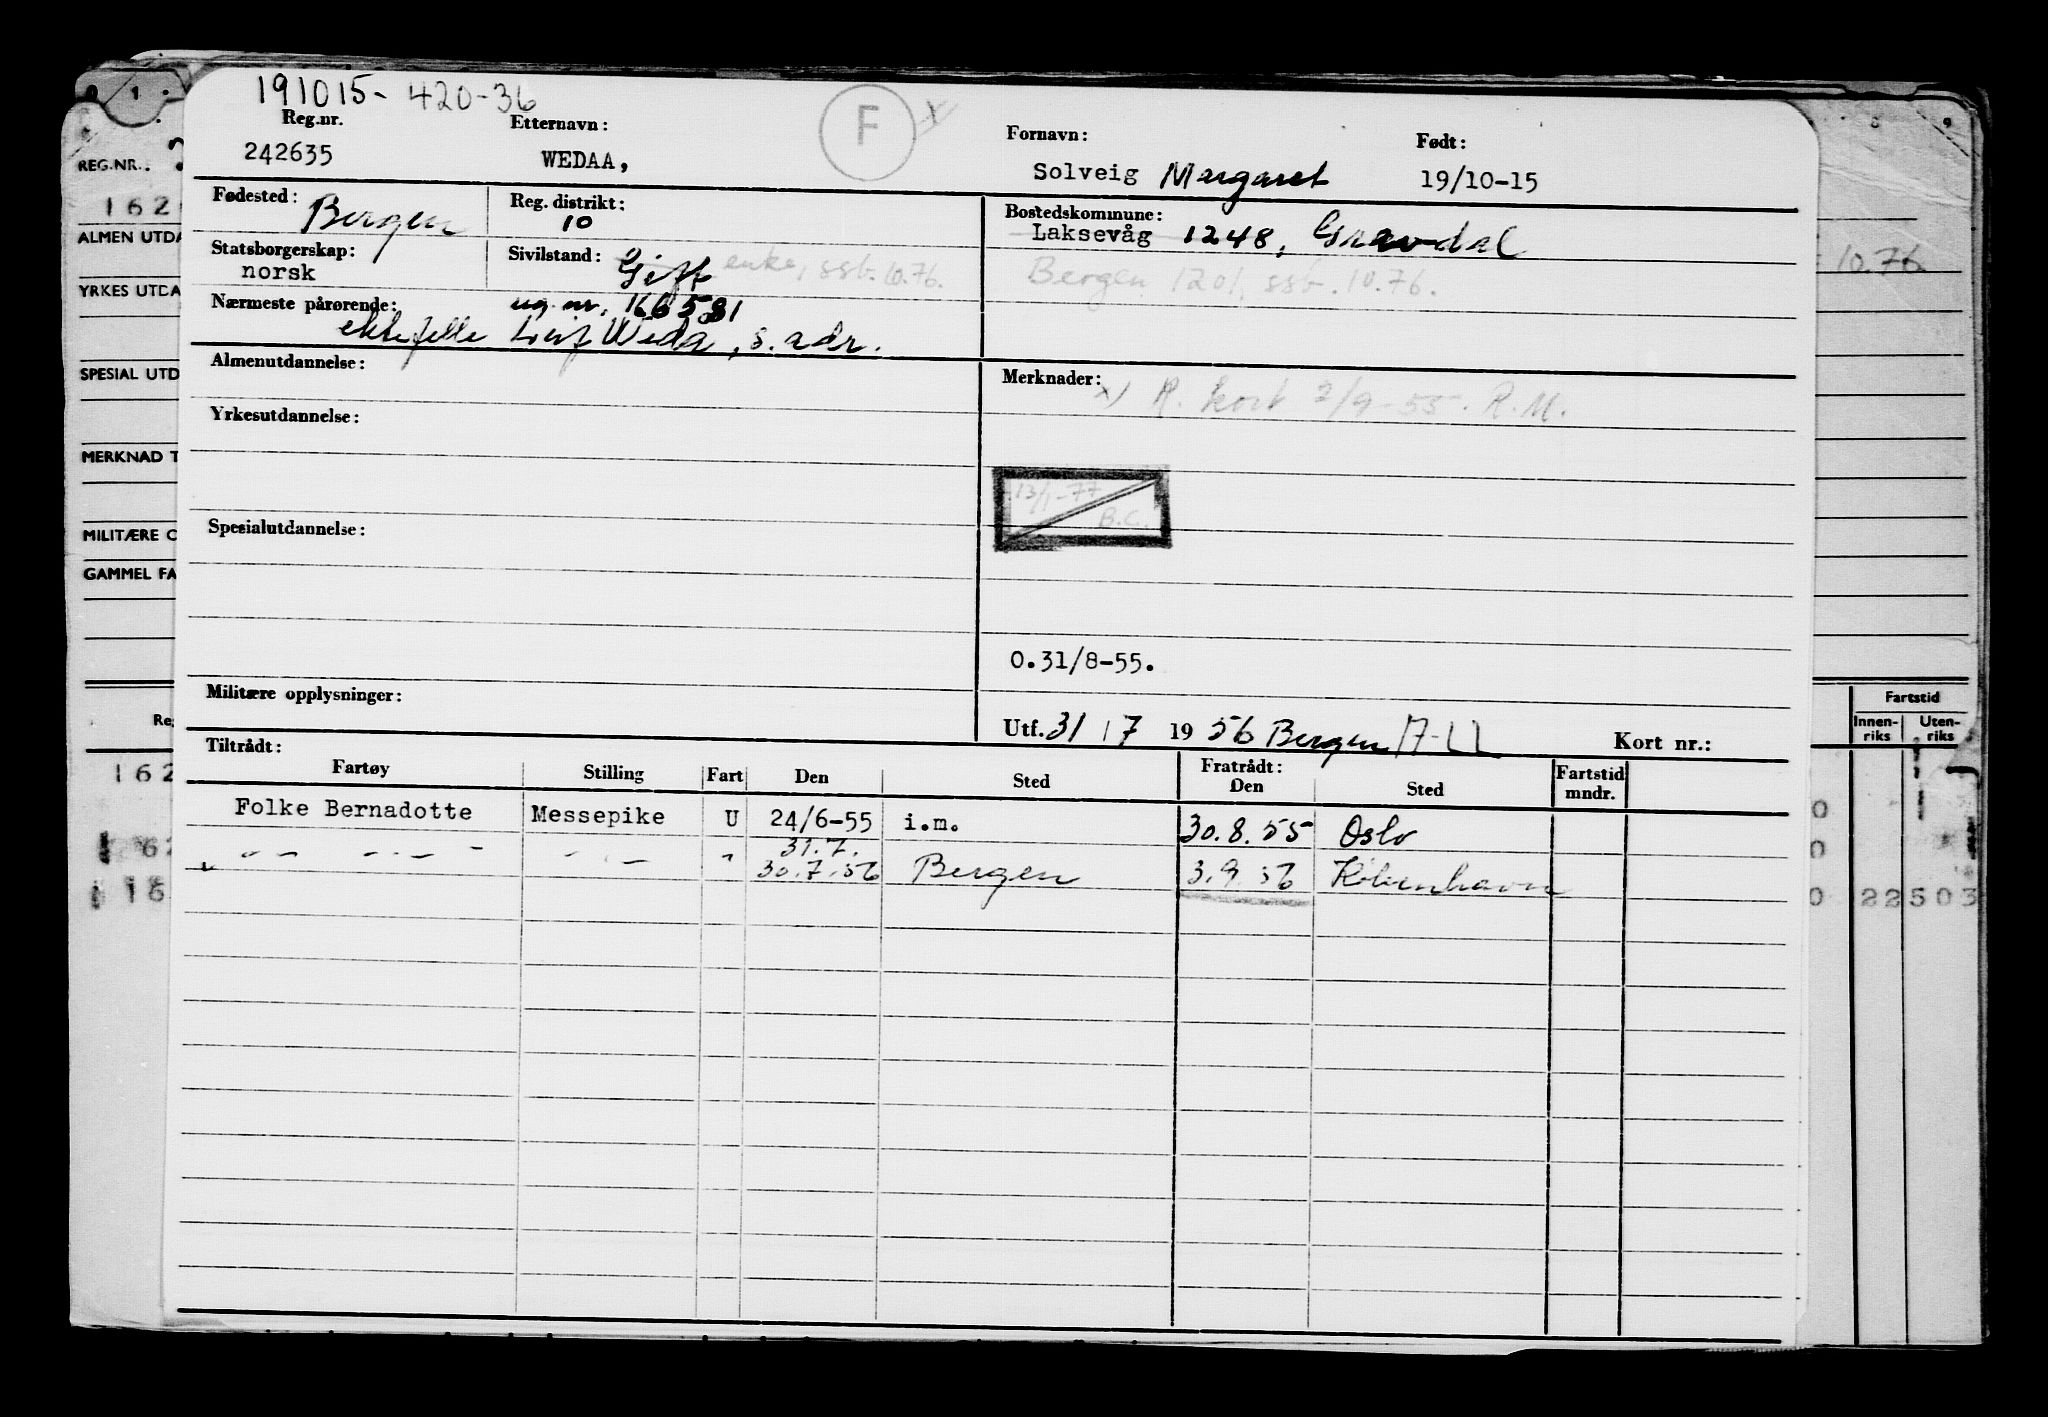 191015-420-36
Reg.nr. Etternavn: F x/ Fornavn: Født:
242635 WEDAA, Solveig Margaret 19/10-15
Fødested: Bergen Reg. distrikt: 10 Bostedskommune:
Laksevåg 1248, Gravdal
Statsborgerskap: norsk Sivilstand: Gift enke, ssb. 10.76. Bergen 1201, ssb. 10.76.
Nærmeste pårørende: ug. nr. 166581
ektefelle Leif Weda, s. adr.
Almenutdannelse: Merknader: x) R. kort 2/9-55. R.M.
Yrkesutdannelse:
13/1-77 B.C.
Spesialutdannelse:
O.31/8-55.
Militære opplysninger:
Utf. 31/7 1956 Bergen Kort nr.:
Tiltrådt: Fratrådt:
Fartøy Stilling Fart Den Sted Den Sted Fartstid mndr.
Folke Bernadotte Messepike U 24/6-55 i.m. 30.8.55 Oslo
31.7.
" 30.7.56 Bergen 3.9.56 København
REG.NR.
162
ALMEN UTDA
YRKES UTDA
SPESIAL UTD
MERKNAD T
MILITÆRE O
GAMMEL FA
Re
162
62
16
10.76.
Fartstid
Innen-riks Uten-riks
0
0
0 22503